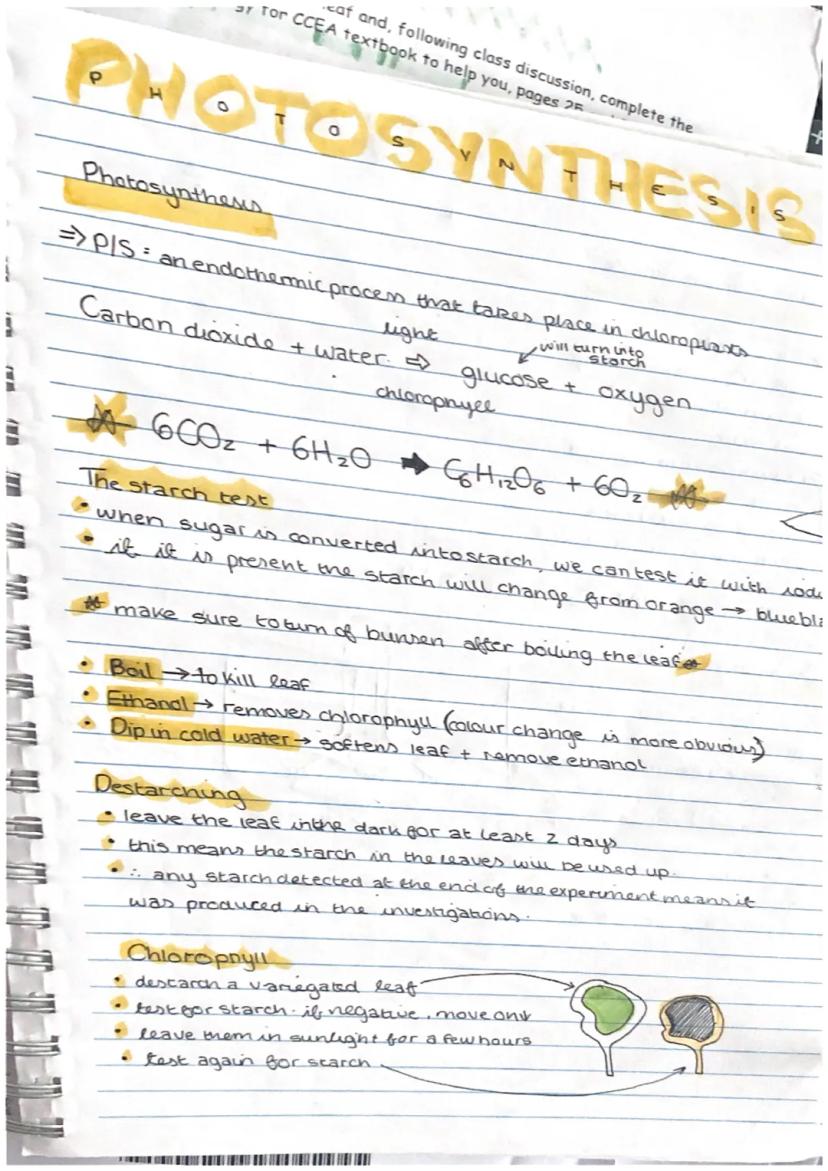 eaf and, following class discussion, complete the
gy for CCEA textbook to help you, pages 25
PHOTOSYNTHESIS
PHOTOSYNTHESIS
Photosynthesis
⇒ P/S : an endothermic process that takes place in chloroplasts
light
will turn into
starch
Carbon dioxide + water ⇨ glucose + oxygen
chlorophyll
6CO₂ + 6H₂O → C₆H₁₂O₆ + 6O₂
The starch test
• when sugar is converted into starch, we can test it with iodi
• if it is present the starch will change from orange → bluebla
make sure to turn of bunsen after boiling the leaf
• Boil → to kill leaf
• Ethanol → removes chlorophyll (colour change is more obvious)
• Dip in cold water → softens leaf + remove ethanol
Destarching
• leave the leaf in the dark for at least 2 days
• this means the starch in the leaves will be used up.
• ∴ any starch detected at the end of the experiment means it
was produced in the investigations.
Chlorophyll
• destarch a variegated leaf
• test for starch. if negative, move on ↓
• leave them in sunlight for a few hours
• test again for starch